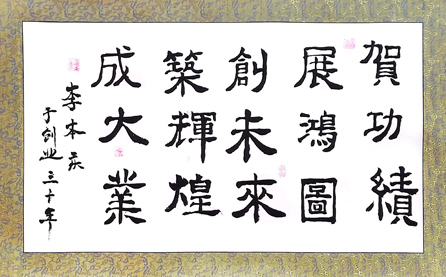 賀功績
展鴻圖
創未來
築輝煌
成大業
李本
于创业三十年